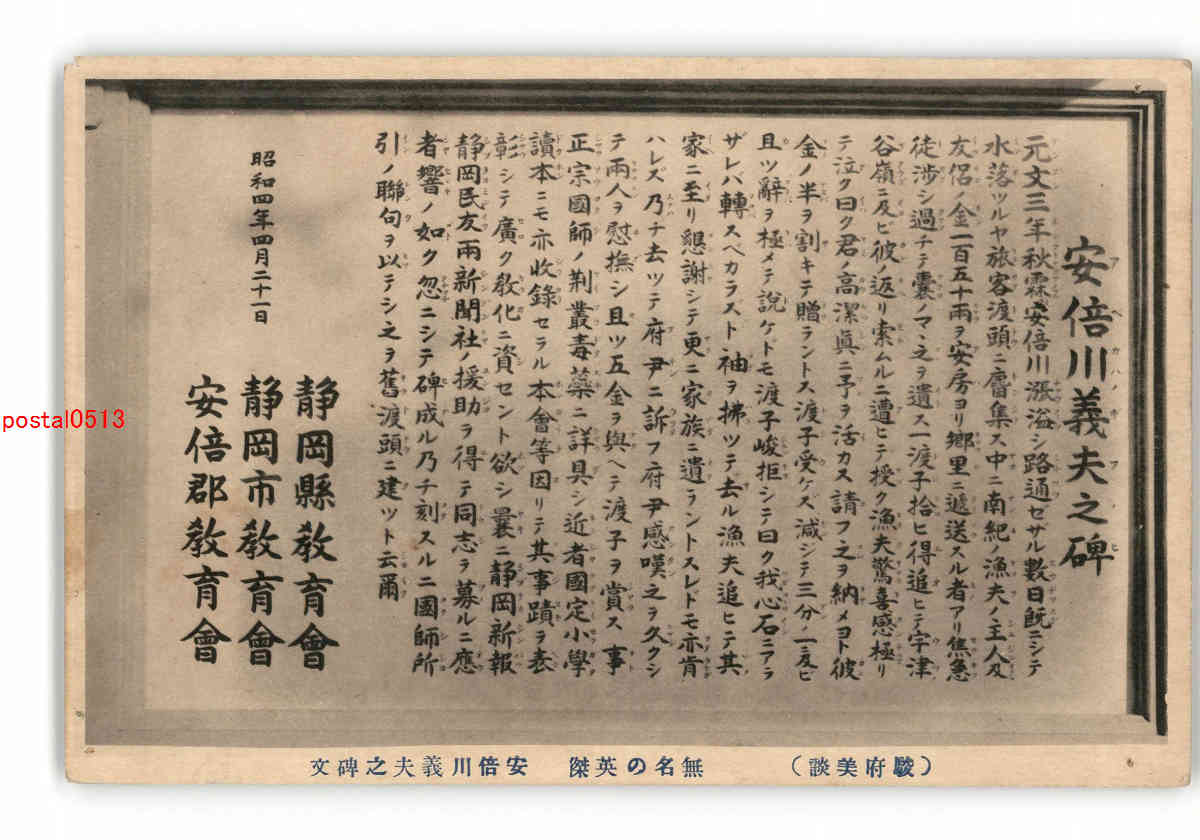 安倍川義夫之碑
元文三年秋霖安倍川漲溢シ路通セサル數日既ニシテ
水落ツルヤ旅客渡頭ニ麕集ス中ニ南紀ノ漁夫ノ主人及
友侶ノ金一百五十兩ヲ安房ヨリ鄉里ニ遞送スル者アリ焦急
徒涉シ過チテ囊ノマヽ之ヲ遺ス一渡子拾ヒ得追ヒテ宇津
谷嶺ニ及ビ彼ノ返リ索ムルニ遭ヒテ授ク漁夫驚喜感極リ
テ泣ク曰ク君ノ高潔眞ニ予ヲ活カス請フ之ヲ納メヨト彼
金ノ半ヲ割キテ贈ラントス渡子受ケズ減ジテ三分ノ一ニ及ビ
且ツ辭ヲ極メテ說ケトモ渡子峻拒シテ曰ク我心石ニアラ
ザレバ轉スベカラスト袖ヲ拂ツテ去ル漁夫追ヒテ其
家ニ至リ懇謝シテ更ニ家族ニ遺ラントスレドモ亦肯
ハレズ乃チ去ツテ府尹ニ訴フ府尹感嘆之ヲ久クシ
テ兩人ヲ慰撫シ且ツ五金ヲ與ヘテ渡子ヲ賞ス事
正宗國師ノ荆叢毒藥ニ詳具シ近者國定小學
讀本ニモ亦收錄セラル本會等因リテ其事蹟ヲ表
彰シテ廣ク敎化ニ資セント欲シ曩ニ靜岡新報
靜岡民友兩新聞社ノ援助ヲ得テ同志ヲ募ルニ應
者響ノ如ク忽ニシテ碑成ル乃チ刻スルニ國師所
引ノ聯句ヲ以テシ之ヲ舊渡頭ニ建ツト云爾
昭和四年四月二十一日
靜岡縣敎育會
靜岡市敎育會
安倍郡敎育會
(駿府美談) 無名の英傑 安倍川義夫之碑文
postal0513